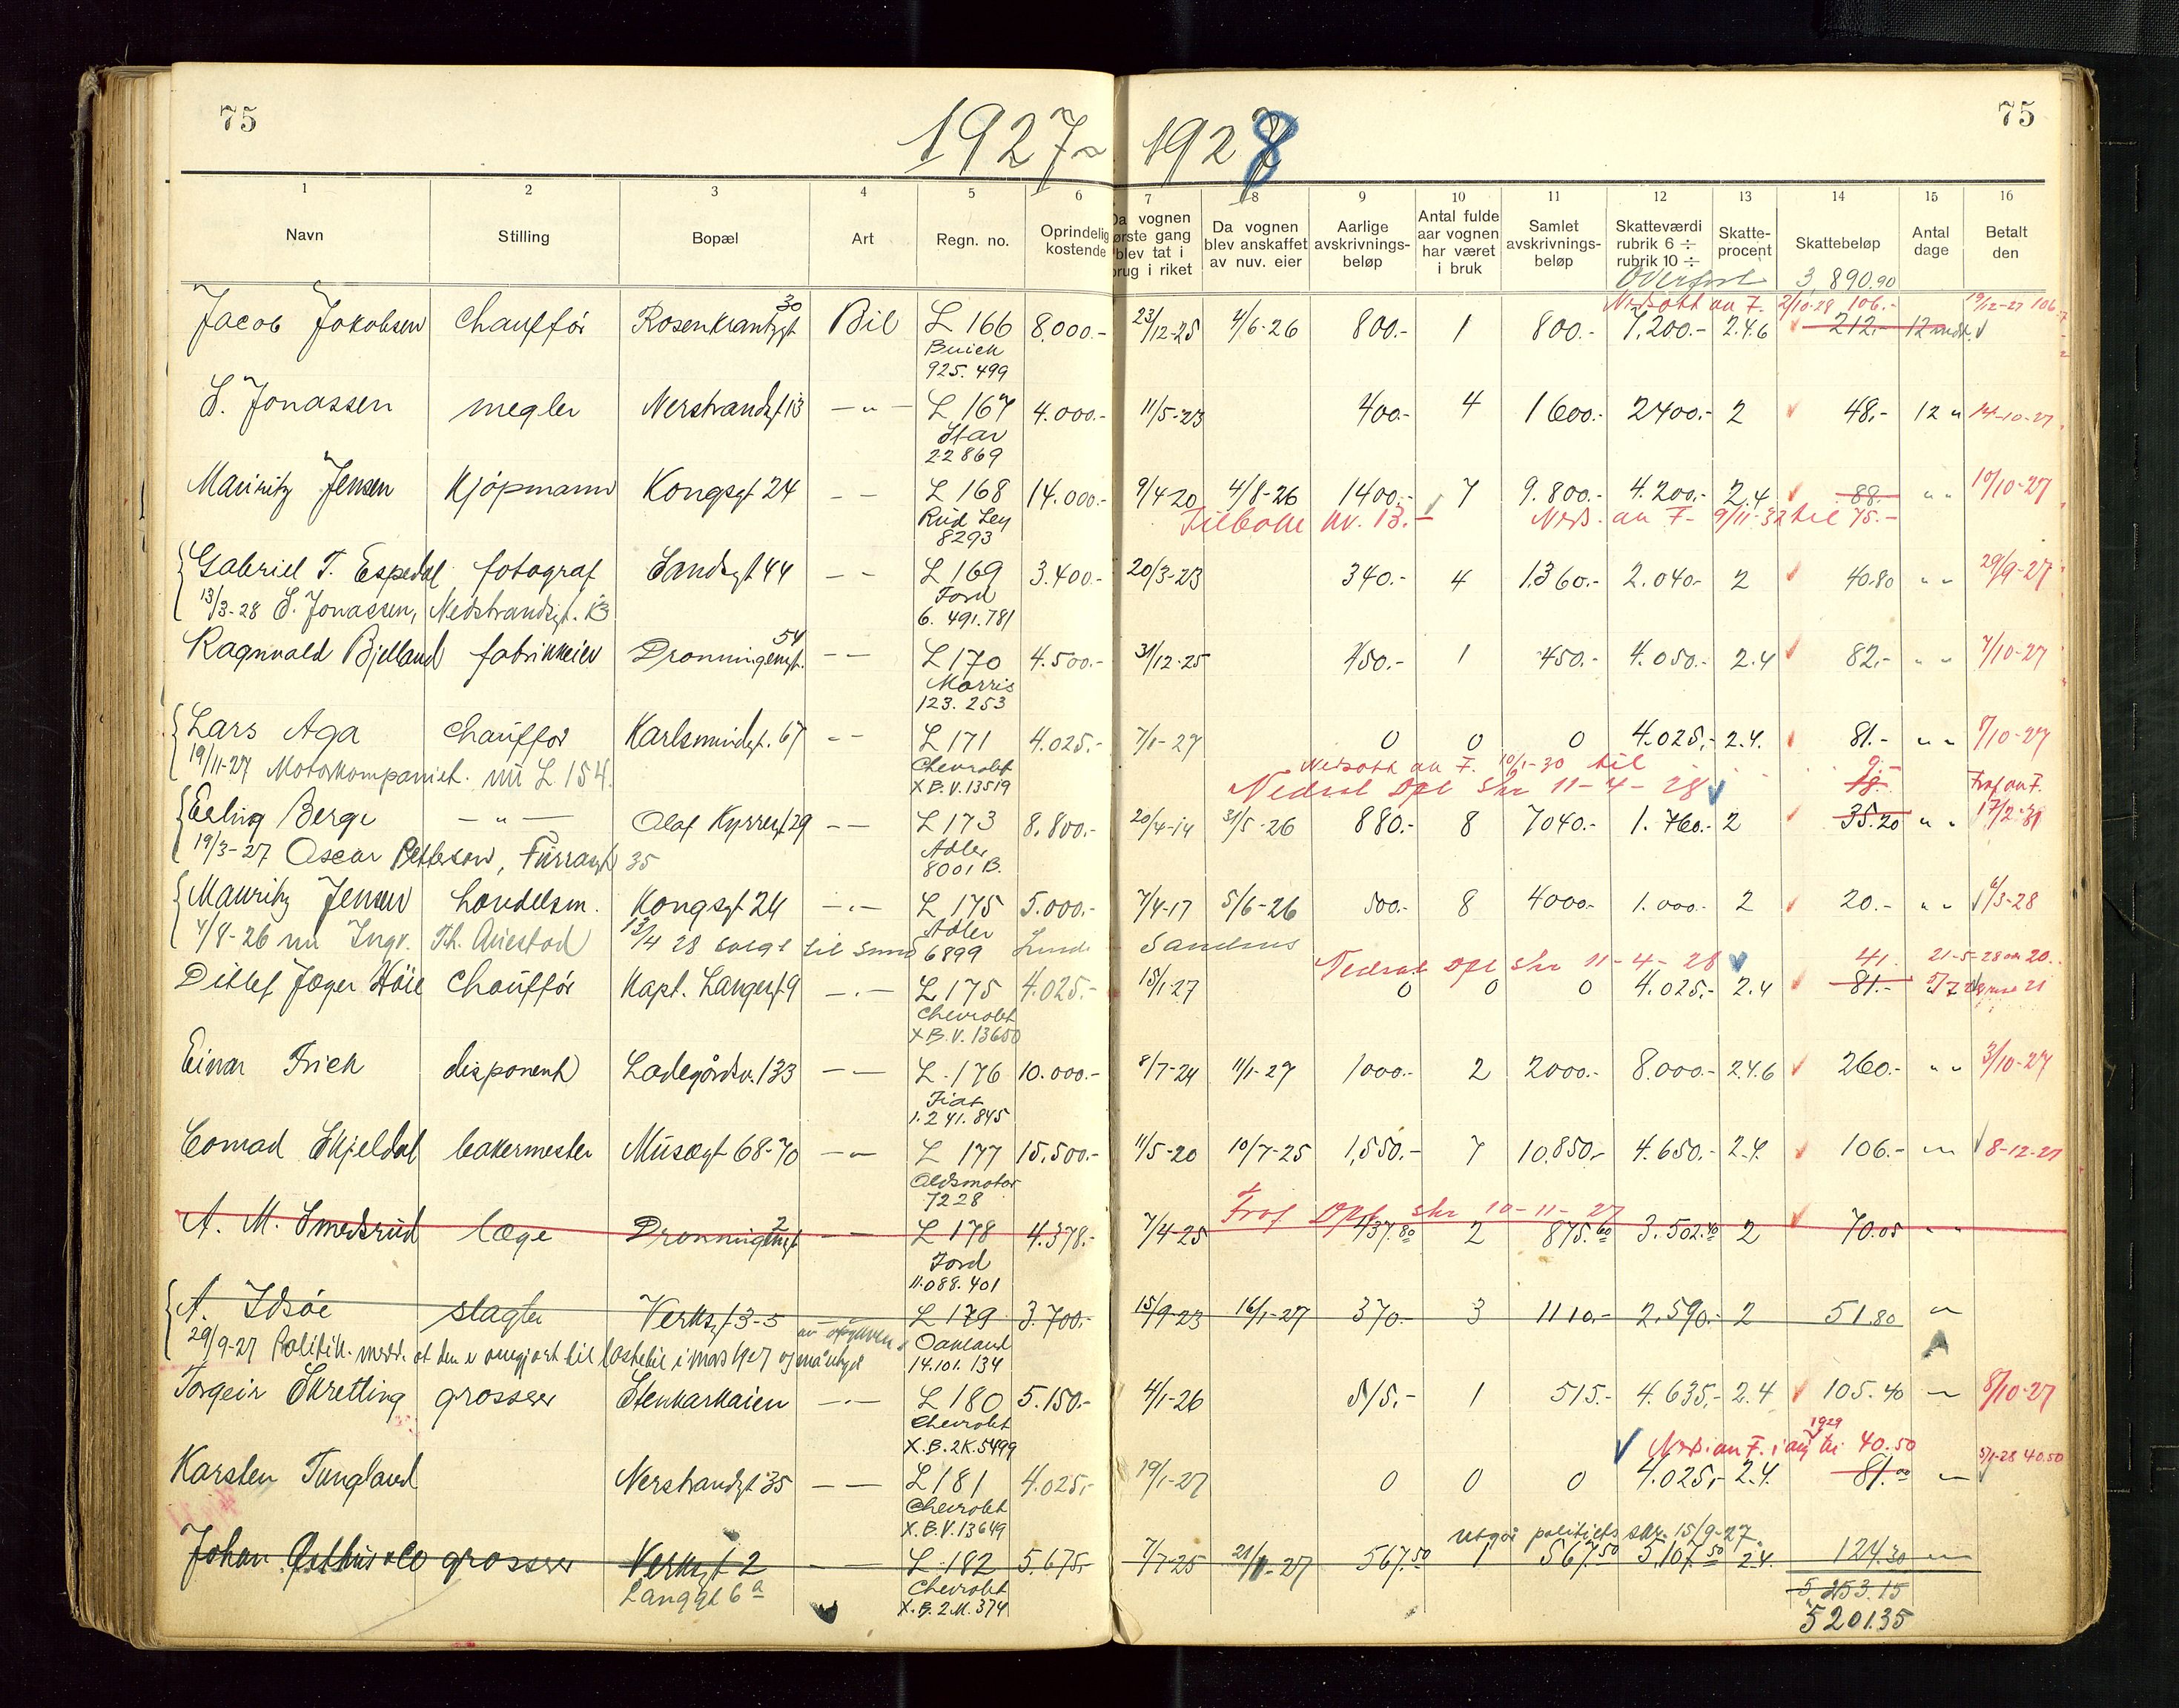 75
75
1927 - 1928
1 2 3 4 5 6 7 8 9 10 11 12 13 14 15 16
Navn Stilling Bopæl Art Regn. no. Oprindelig kostende vognen første gang blev tat i brug i riket Da vognen blev anskaffet av nuv. eier Aarlige avskrivnings-beløp Antal fulde aar vognen har været i bruk Samlet avskrivnings-beløp Skatteværdi rubrik 6 ÷ rubrik 10 ÷ Skatte-procent Skattebeløp Antal dage Betalt den
Overført 3,890.90
Nedsatt au F. 2/10-28 106.- 19/12-27 106.-
Jacob Jakobsen Chauffør Rosenkrantzgt 30 Bil L 166 8.000.- 23/12-25 4/6-26 800.- 1 800.- 7,200.- 2.4.6 212.- 12 mdr.
Buick
925.499
S. Jonassen megler Nerstrandgt 13 -"- L 167 4.000.- 11/5-23 400.- 4 1600.- 2400.- 2 48.- 12 " 14-10-27
Star
22869
Mauritz Jensen Kjøpmann Kongsgt 24 - - L 168 14.000.- 9/4-20 4/8-26 1400.- 7 9.800.- 4.200.- 2.4 88.- " " 10/10-27
Rud Ley
8293
Tilbake kr. 13.- Neds. au F. 9/11-32 til 75.-
Gabriel T. Espedal fotograf Sandsgt 44 - - L 169 3.400.- 20/3-23 340.- 4 1.360.- 2.040.- 2 40.80 " " 29/9-27
13/3-28 S. Jonassen, Nedstrandsgt. 13 Ford
6.491.781
Ragnvald Bjelland fabrikkeier Dronningensgt. 54 - - L 170 4.500.- 31/12-25 450.- 1 450.- 4.050.- 2.4 82.- " " 7/10-27
Morris
123.253
Lars Aga Chauffør Karlsmindegt. 67 - - L 171 4.025.- 7/1-27 0 0 0 4.025.- 2.4. 81.- " " 8/10-27
19/11-27 Motorkompaniet. nu L 154. Chevrolet
X.B.V.13519
Nedsatt au F. 10/1-30 til 9.-
Nedsat Opl skr 11-4-28 18.- Fraf au F.
Erling Berge -"- Olaf Kyrresgt 29 - - L 173 8.800.- 20/4-14 31/5-26 880.- 8 7040.- 1.760.- 2 35.20 " " 17/2-31
19/3-27 Oscar Pettersen, Furrasgt 35 Adler
8001 B.
Mauritz Jensen handelsm. Kongsgt 24 -.- L 175 5.000.- 7/4-17 5/6-26 500.- 8 4000.- 1.000.- 2 20.- " " 6/3-28
4/8-26 nu Ingv. Th. Auestad 12/4 28 solgt til Adler
6899 Sandnes
Nedsat Opl skr 11-4-28 41. 21-5-28 20.-
Ditlef Jæger Høie Chauffør Kapt. Langesgt 9 -.- L 175 4.025.- 15/1-27 0 0 0 4.025.- 2.4 81.- 21
Chevrolet
X.B.V.13650
Einar Frich disponent Ladegårdsv. 133 - - L 176 10.000.- 8/7-24 11/1-27 1000.- 2 2000.- 8.000.- 2.4.6 260.- " " 3/10-27
Fiat
1.241.845
Conrad Skjeldal bakermester Musegt 68-70 -"- L 177 15.500.- 11/5-20 10/7-25 1,550.- 7 10.850.- 4.650.- 2.4. 106.- " 8-12-27
Oldsmotor
7228
Fraf Opl skr 10-11-27
A. M. Smedsrud læge Dronningensgt 2 - L 178 4.378.- 7/4-25 437.80 2 875.60 3.502.40 2 70.05 " "
Ford
11.088.401
A. Idsøe slagter Verksgt 3-5 - L 179 3.700.- 15/9-23 16/1-27 370.- 3 1110.- 2.590.- 2 51.80 "
29/9-27 Politik. medd. at den er omgjort til lastebil i mars 1927 og må utgå Oakland
14.101.134
Torgeir Skretting grosserer Stenkarkaien -.- L 180 5.150.- 4/1-26 515.- 1 515.- 4.635.- 2.4 105.40 " 8/10-27
Chevrolet
X.B.2K.5499
Neds. au F. i aug 1929 til 40.50 5/1-28 40.50
Karsten Tungland Nerstrandgt 35 - - L 181 4.025.- 19/1-27 0 0 0 4.025.- 2.4. 81.00 "
Chevrolet
X.B.V.13649
Utgår politiets skr. 15/9-27.
Johan Østhus & Co grosserer Verksgt 2 - L 182 5.675.- 7/7-25 21/1-27 567.50 1 567.50 5.107.50 2.4. 124.30 "
Langgt 6a Chevrolet
X.B.2.M.374
5 253.15
5201.35